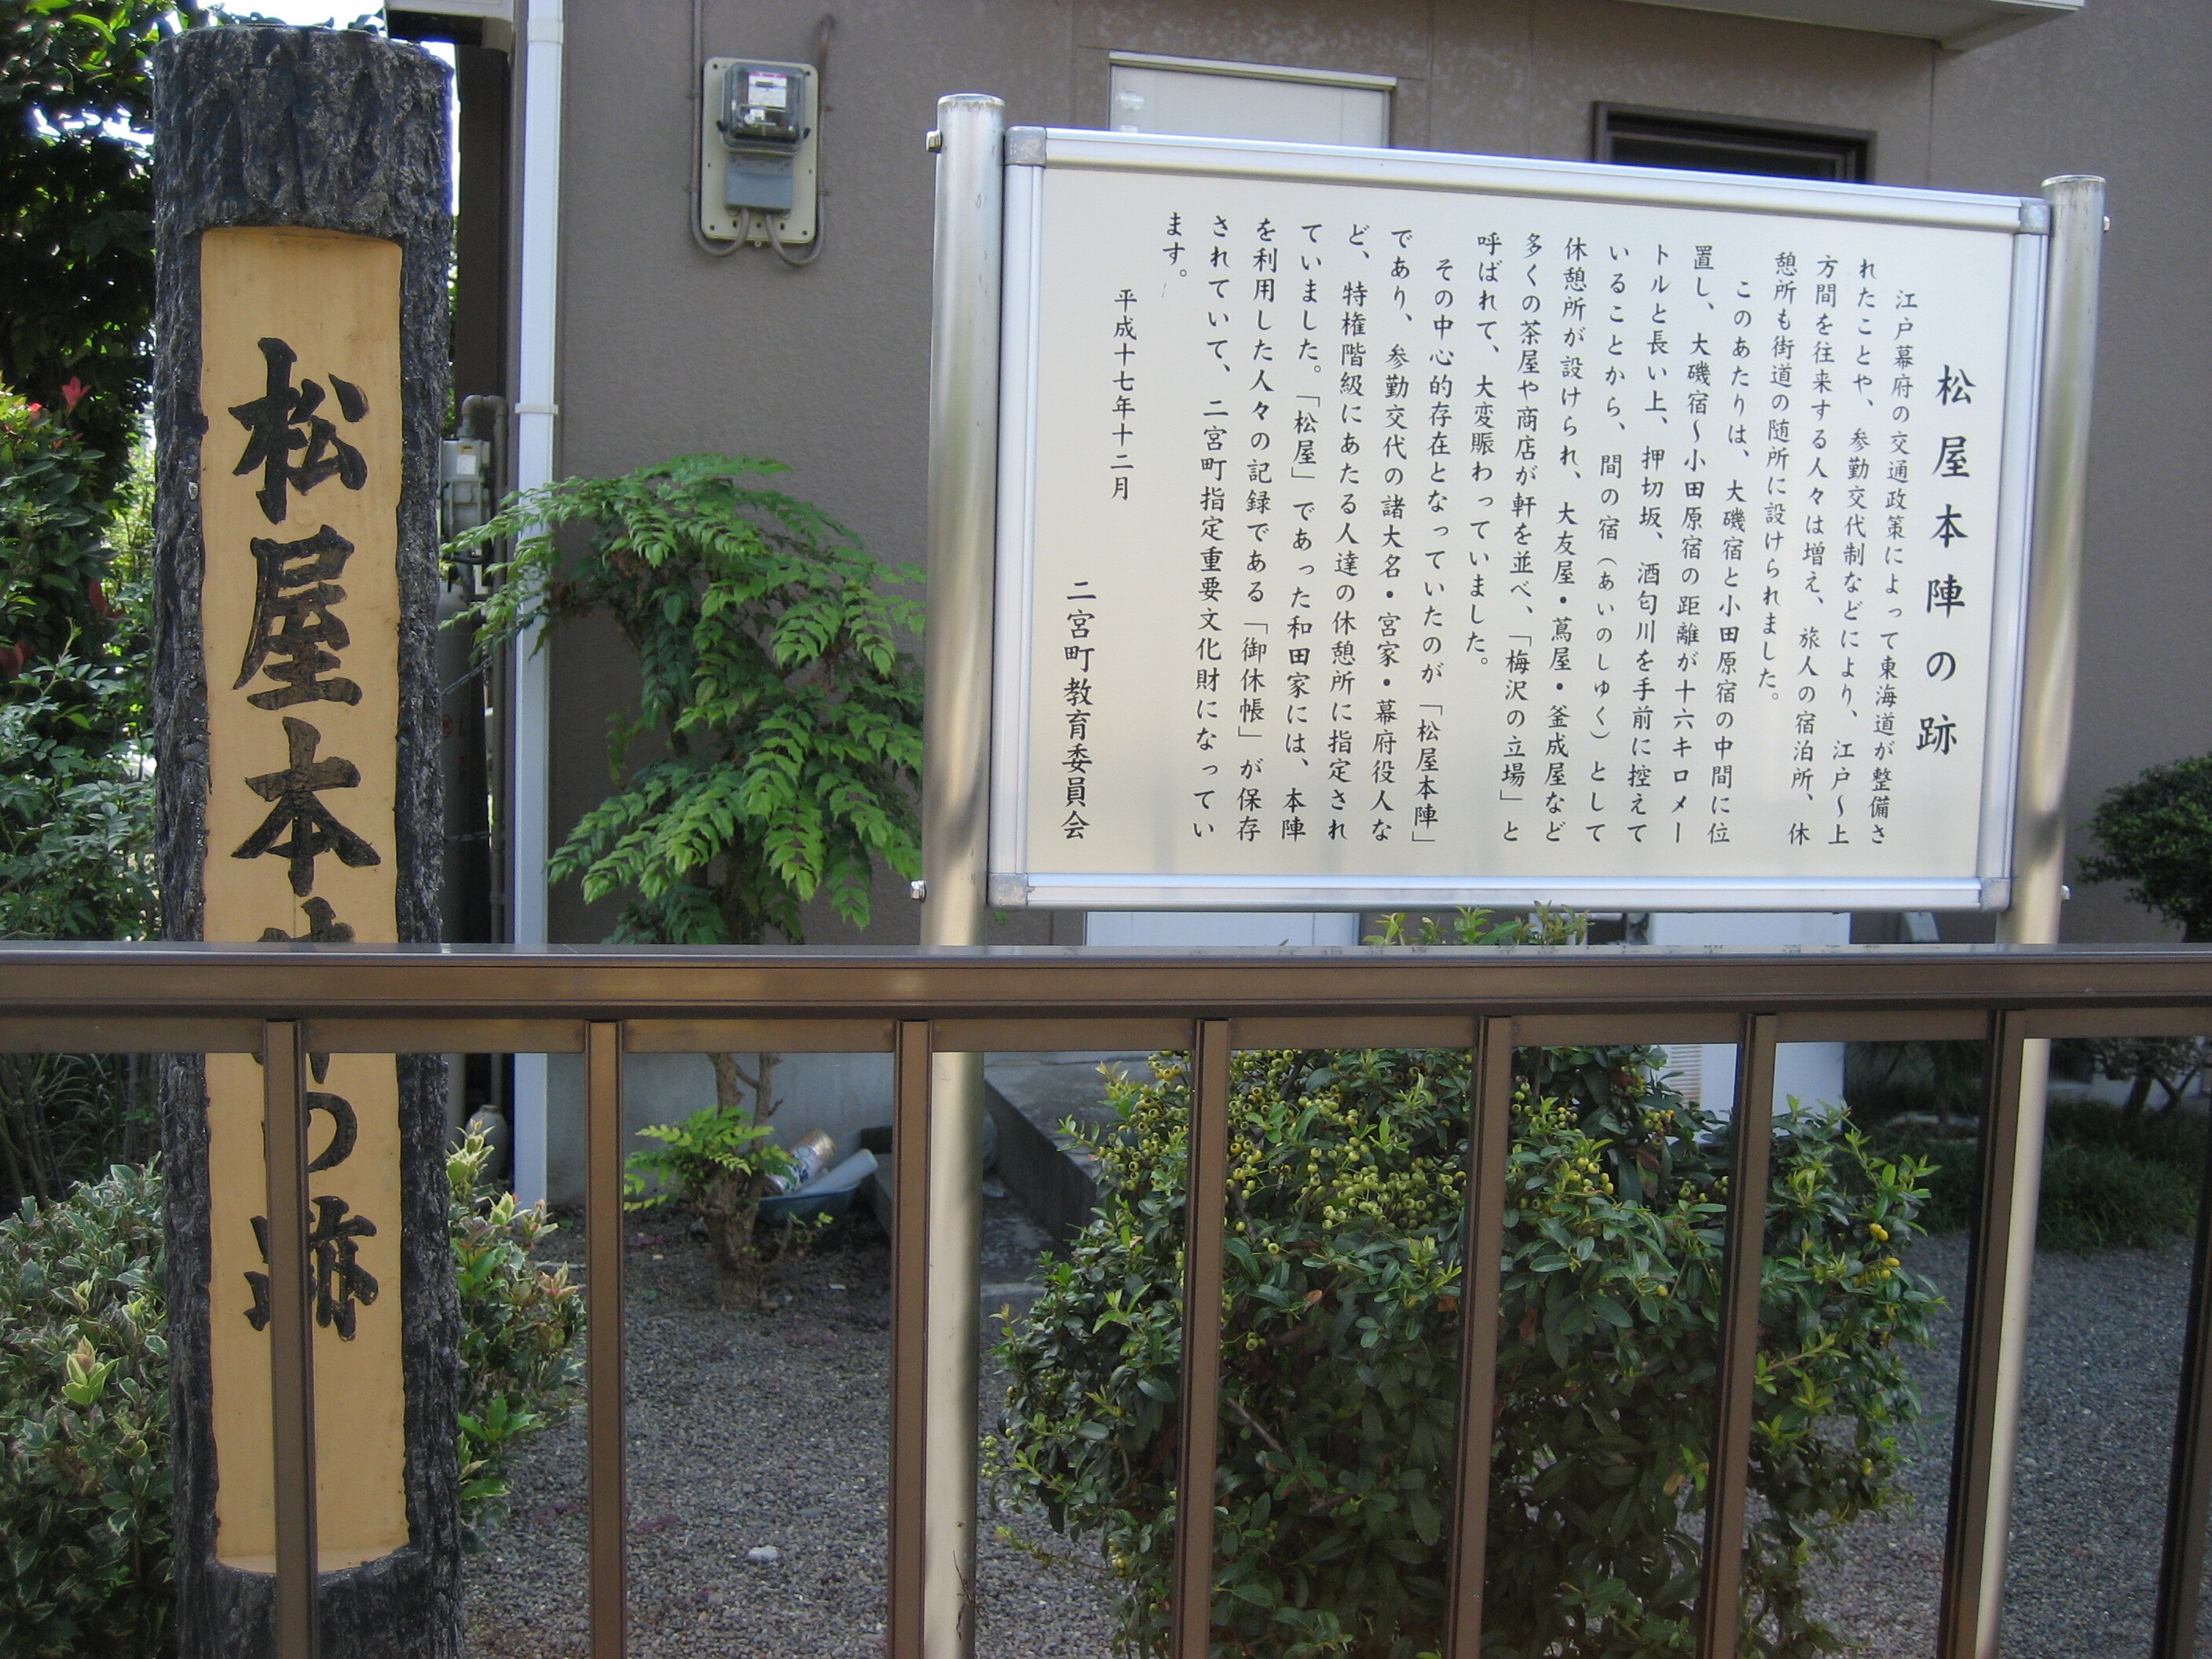 松屋本陣の跡
松屋本陣の跡
江戸幕府の交通政策によって東海道が整備さ
れたことや、参勤交代制などにより、江戸～上
方間を往来する人々は増え、旅人の宿泊所、休
憩所も街道の随所に設けられました。
このあたりは、大磯宿と小田原宿の中間に位
置し、大磯宿～小田原宿の距離が十六キロメー
トルと長い上、押切坂、酒匂川を手前に控えて
いることから、間の宿（あいのしゅく）として
休憩所が設けられ、大友屋・蔦屋・釜成屋など
多くの茶屋や商店が軒を並べ、「梅沢の立場」と
呼ばれて、大変賑わっていました。
その中心的存在となっていたのが「松屋本陣」
であり、参勤交代の諸大名・宮家・幕府役人な
ど、特権階級にあたる人達の休憩所に指定され
ていました。「松屋」であった和田家には、本陣
を利用した人々の記録である「御休帳」が保存
されていて、二宮町指定重要文化財になってい
ます。
平成十七年十二月
二宮町教育委員会